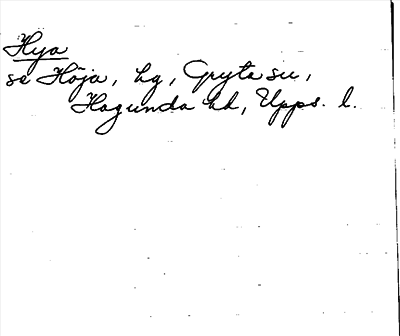 Hya
se Höja, hg, Gryta sn,
Hagunda hd, Upps. l.